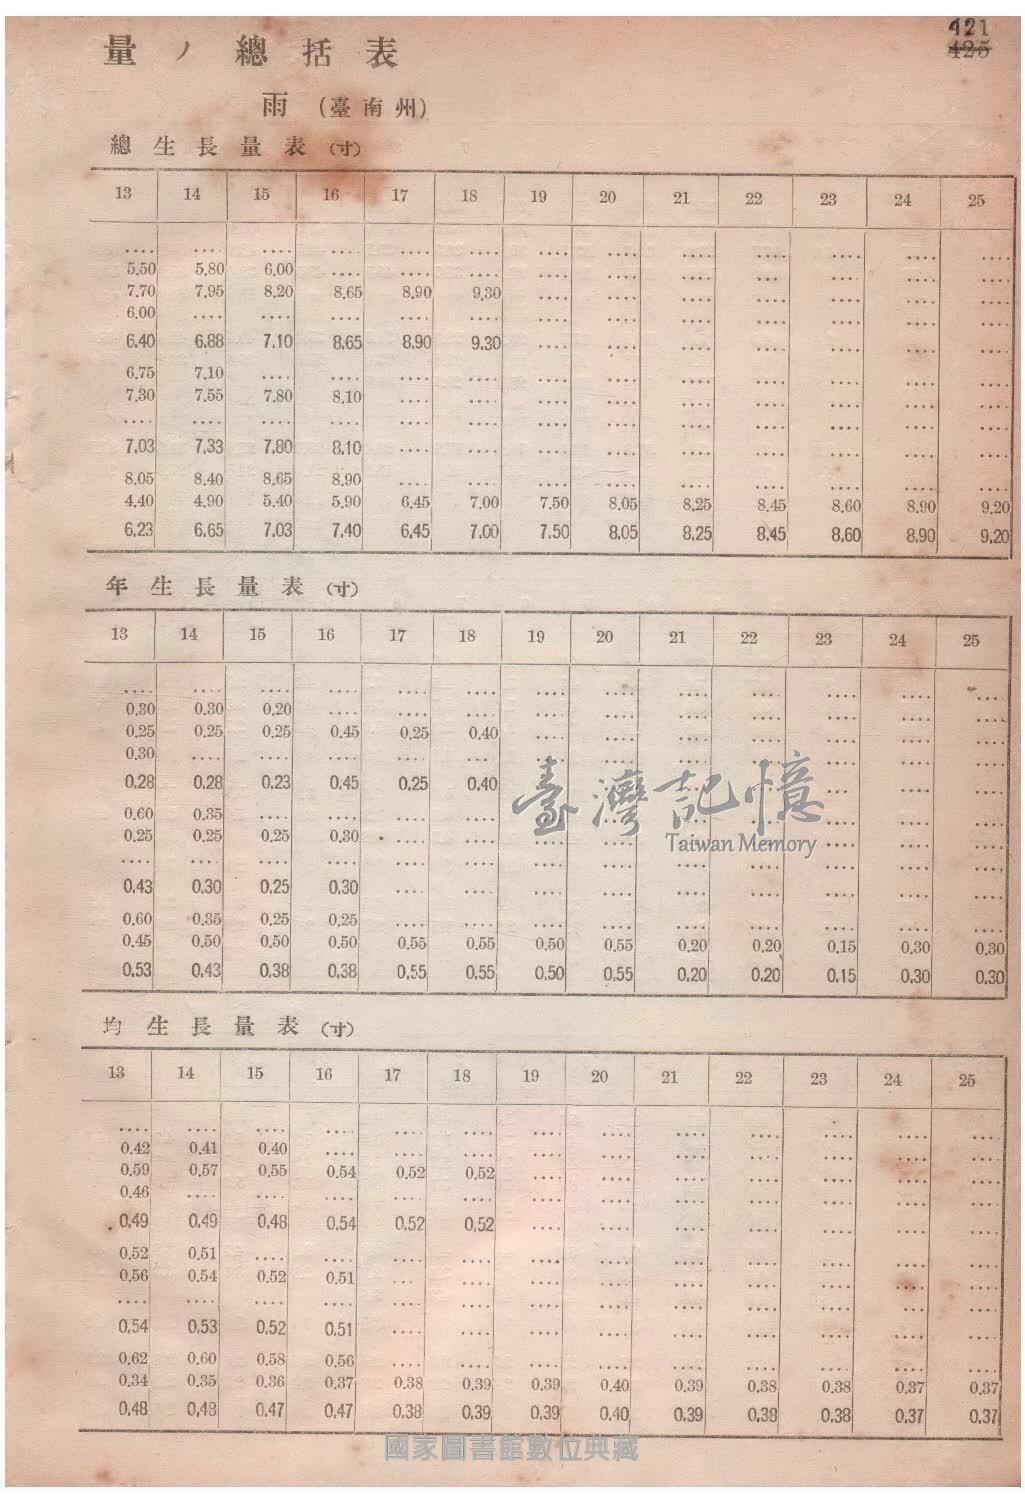 421
425
量ノ總括表
雨（臺南州）
總生長量表（寸）
13 14 15 16 17 18 19 20 21 22 23 24 25
.... .... .... .... .... .... .... .... .... .... .... .... ....
5.50 5.80 6.00 .... .... .... .... .... .... .... .... .... ....
7.70 7.95 8.20 8.65 8.90 9.30 .... .... .... .... .... .... ....
6.00 .... .... .... .... .... .... .... .... .... .... .... ....
6.40 6.88 7.10 8.65 8.90 9.30 .... .... .... .... .... .... ....
6.75 7.10 .... .... .... .... .... .... .... .... .... .... ....
7.30 7.55 7.80 8.10 .... .... .... .... .... .... .... .... ....
.... .... .... .... .... .... .... .... .... .... .... .... ....
7.03 7.33 7.80 8.10 .... .... .... .... .... .... .... .... ....
8.05 8.40 8.65 8.90 .... .... .... .... .... .... .... .... ....
4.40 4.90 5.40 5.90 6.45 7.00 7.50 8.05 8.25 8.45 8.60 8.90 9.20
6.23 6.65 7.03 7.40 6.45 7.00 7.50 8.05 8.25 8.45 8.60 8.90 9.20
年生長量表（寸）
13 14 15 16 17 18 19 20 21 22 23 24 25
.... .... .... .... .... .... .... .... .... .... .... .... ....
0.30 0.30 0.20 .... .... .... .... .... .... .... .... .... ....
0.25 0.25 0.25 0.45 0.25 0.40 .... .... .... .... .... .... ....
0.30 .... .... .... .... .... .... .... .... .... .... .... ....
0.28 0.28 0.23 0.45 0.25 0.40 .... .... .... .... .... .... ....
0.60 0.35 .... .... .... .... .... .... .... .... .... .... ....
0.25 0.25 0.25 0.30 .... .... .... .... .... .... .... .... ....
.... .... .... .... .... .... .... .... .... .... .... .... ....
0.43 0.30 0.25 0.30 .... .... .... .... .... .... .... .... ....
0.60 0.35 0.25 0.25 .... .... .... .... .... .... .... .... ....
0.45 0.50 0.50 0.50 0.55 0.55 0.50 0.55 0.20 0.20 0.15 0.30 0.30
0.53 0.43 0.38 0.38 0.55 0.55 0.50 0.55 0.20 0.20 0.15 0.30 0.30
臺灣記憶
Taiwan Memory
均生長量表（寸）
13 14 15 16 17 18 19 20 21 22 23 24 25
.... .... .... .... .... .... .... .... .... .... .... .... ....
0.42 0.41 0.40 .... .... .... .... .... .... .... .... .... ....
0.59 0.57 0.55 0.54 0.52 0.52 .... .... .... .... .... .... ....
0.46 .... .... .... .... .... .... .... .... .... .... .... ....
0.49 0.49 0.48 0.54 0.52 0.52 .... .... .... .... .... .... ....
0.52 0.51 .... .... .... .... .... .... .... .... .... .... ....
0.56 0.54 0.52 0.51 .... .... .... .... .... .... .... .... ....
.... .... .... .... .... .... .... .... .... .... .... .... ....
0.54 0.53 0.52 0.51 .... .... .... .... .... .... .... .... ....
0.62 0.60 0.58 0.56 .... .... .... .... .... .... .... .... ....
0.34 0.35 0.36 0.37 0.38 0.39 0.39 0.40 0.39 0.38 0.38 0.37 0.37
0.48 0.48 0.47 0.47 0.38 0.39 0.39 0.40 0.39 0.38 0.38 0.37 0.37
國家圖書館數位典藏